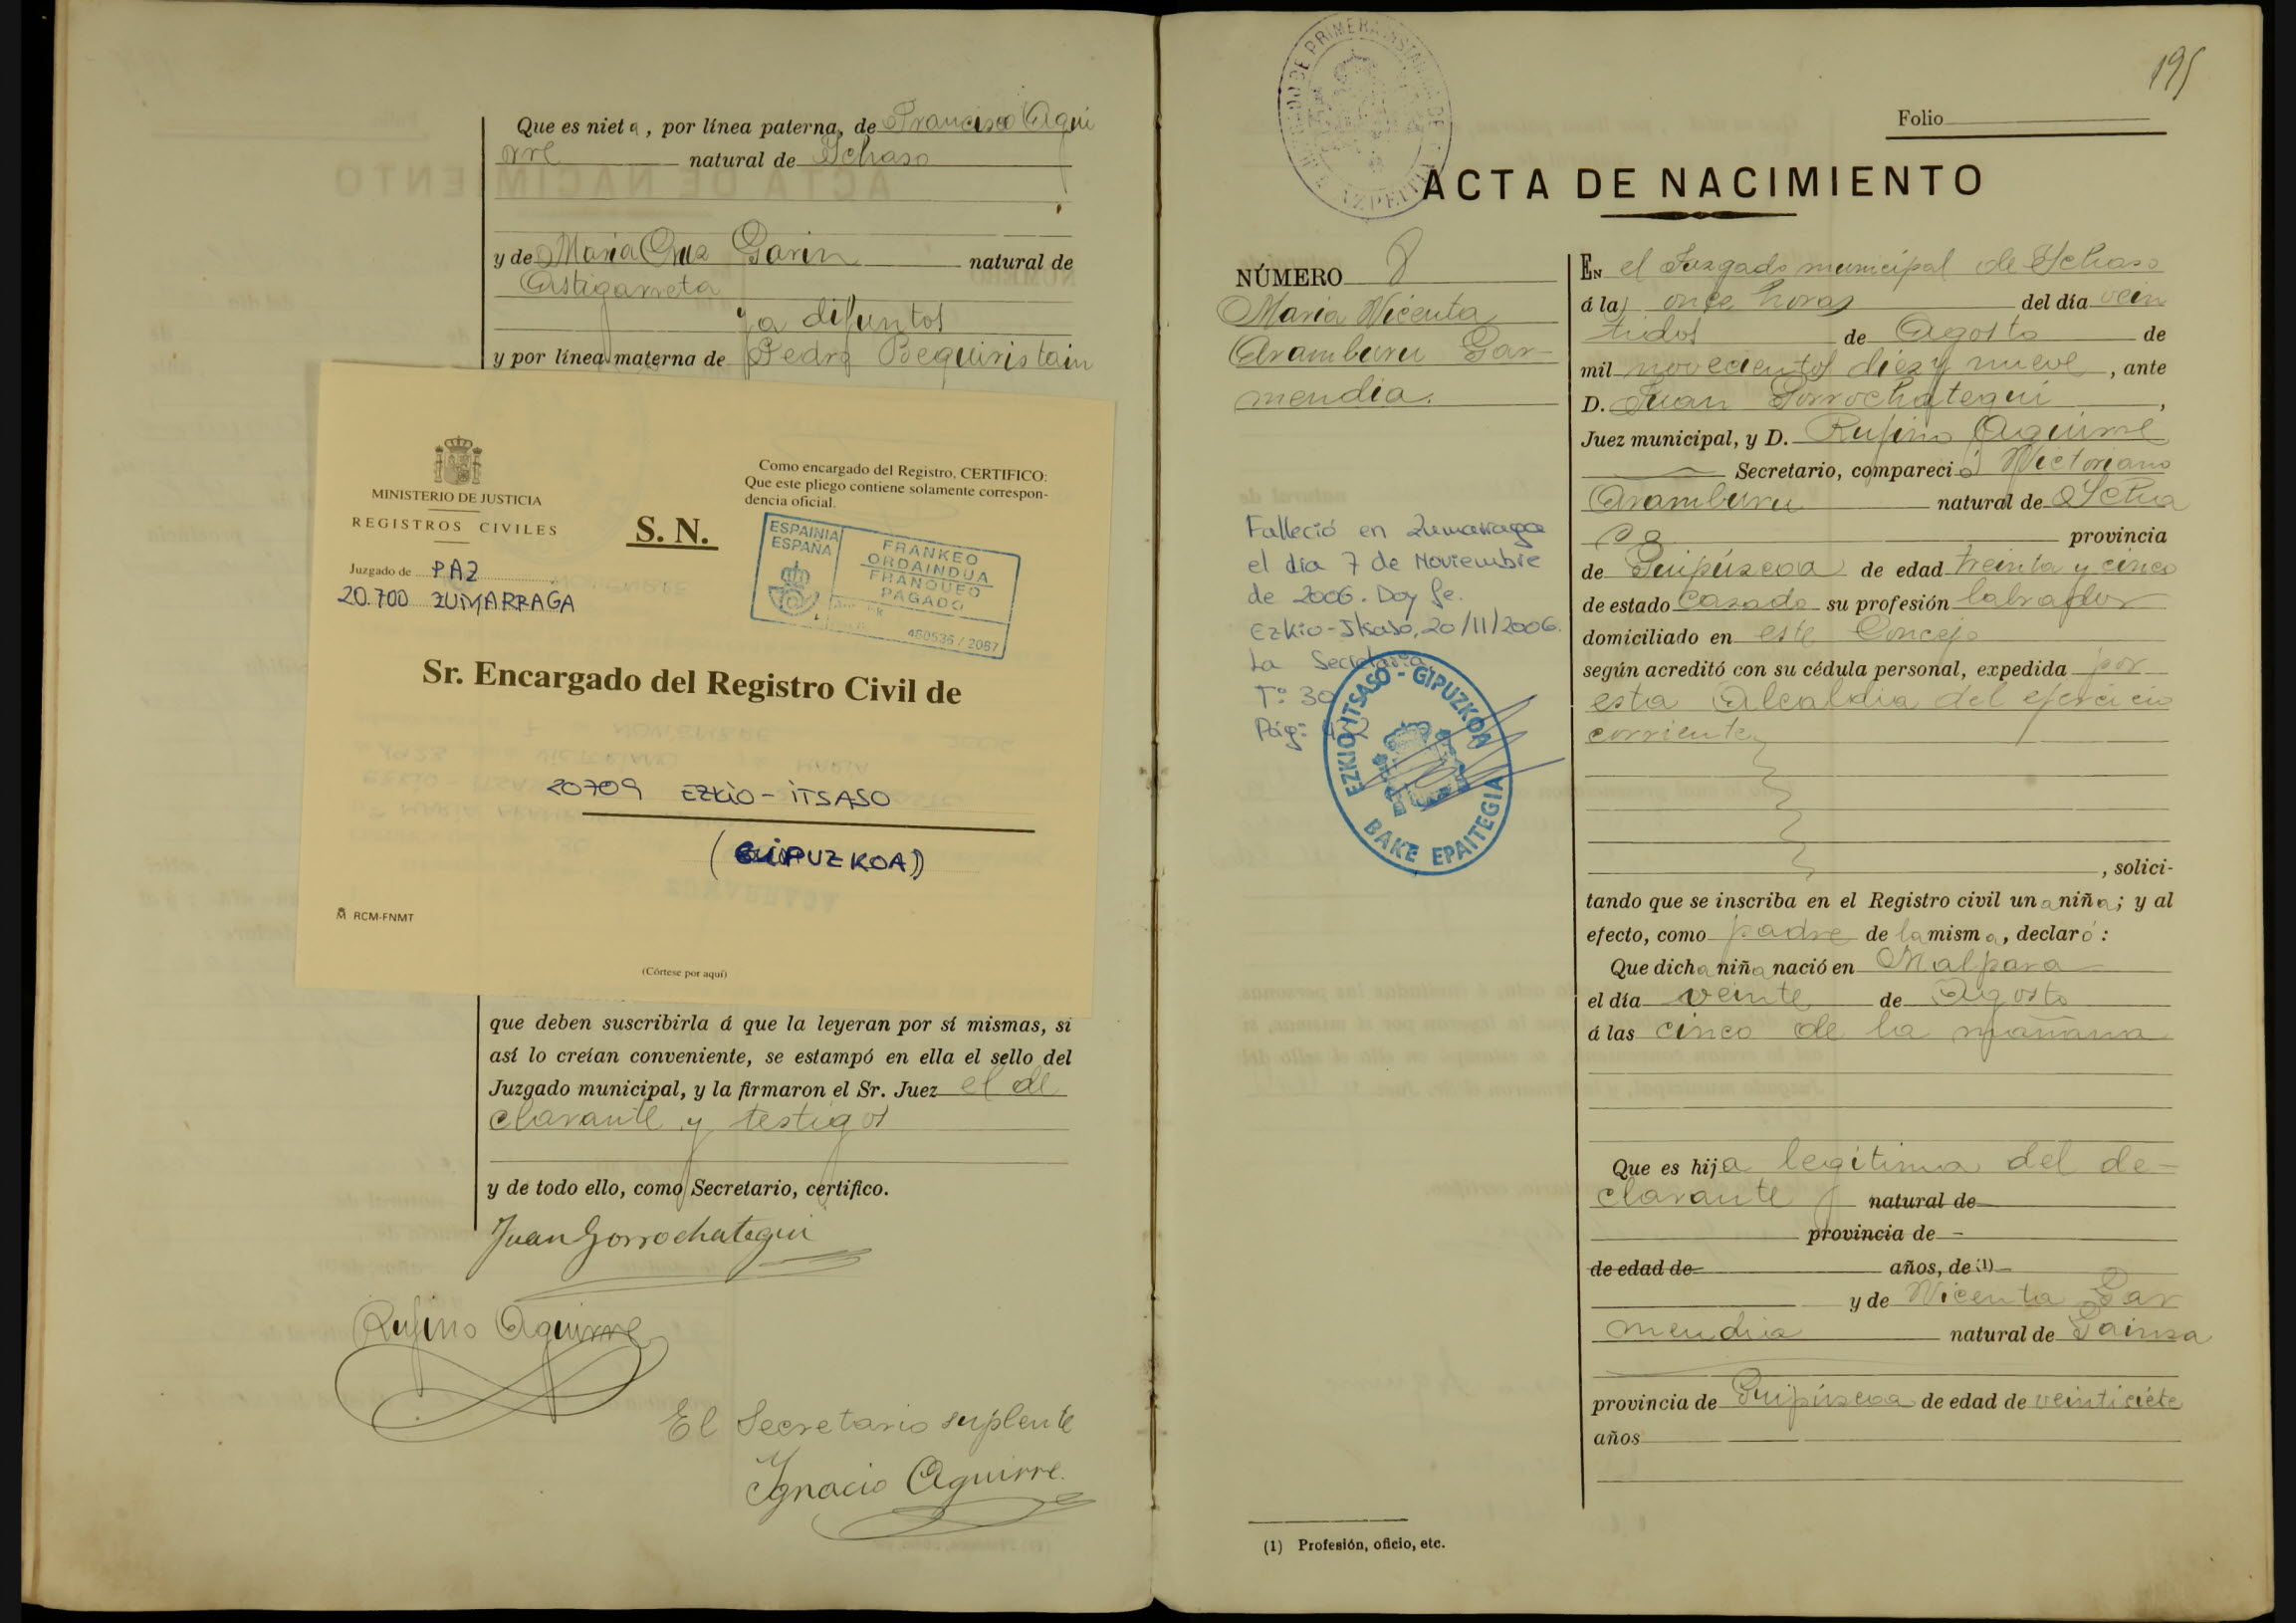 Que es nieta, por línea paterna, de Francisco Agui
rre natural de Ichaso
y de Maria Cruz Garin natural de
Astigarreta
ya difuntos
y por línea materna de Pedro Beguiristain
MINISTERIO DE JUSTICIA
REGISTROS CIVILES
Juzgado de PAZ
20.700 ZUMARRAGA
S. N.
Como encargado del Registro, CERTIFICO:
Que este pliego contiene solamente correspon-
dencia oficial.
ESPAINIA
ESPAÑA
FRANKEO
ORDAINDUA
FRANQUEO
PAGADO
460536 / 2087
Sr. Encargado del Registro Civil de
20709 EZKIO - ITSASO
(GIPUZKOA)
RCM-FNMT
(Córtese por aquí)
que deben suscribirla á que la leyeran por sí mismas, si
así lo creían conveniente, se estampó en ella el sello del
Juzgado municipal, y la firmaron el Sr. Juez el de
clarante y testigos
y de todo ello, como Secretario, certifico.
Juan Gorrochategui
Rufino Aguirre
El Secretario suplente
Ignacio Aguirre.
195
Folio
JUZGADO DE PRIMERA INSTANCIA DE AZPEITIA
ACTA DE NACIMIENTO
NÚMERO 8
Maria Vicenta
Aramburu Gar-
mendia.
Falleció en Zumarraga
el día 7 de Noviembre
de 2006. Doy fe.
Ezkio-Itsaso, 20/11/2006.
La Secretaria,
Tº: 30
Pág:
EZKIO-ITSASO - GIPUZKOA
BAKE EPAITEGIA
EN el Juzgado municipal de Ichaso
á las once horas del día vein
tidos de Agosto de
mil novecientos diez y nueve, ante
D. Juan Gorrochategui,
Juez municipal, y D. Rufino Aguirre
Secretario, compareció Victoriano
Aramburu natural de Icha
so provincia
de Guipúzcoa de edad treinta y cinco
de estado casado su profesión labrador
domiciliado en este Concejo
según acreditó con su cédula personal, expedida por
esta Alcaldia del ejercicio
corriente
, solici-
tando que se inscriba en el Registro civil una niña; y al
efecto, como padre de la misma, declaró:
Que dicha niña nació en Malpara
el día veinte de Agosto
á las cinco de la mañana
Que es hija legítima del de-
clarante natural de
provincia de
de edad de años, de (1)
y de Vicenta Gar
mendia natural de Gainza
provincia de Guipúzcoa de edad de veintisiete
años
(1) Profesión, oficio, etc.